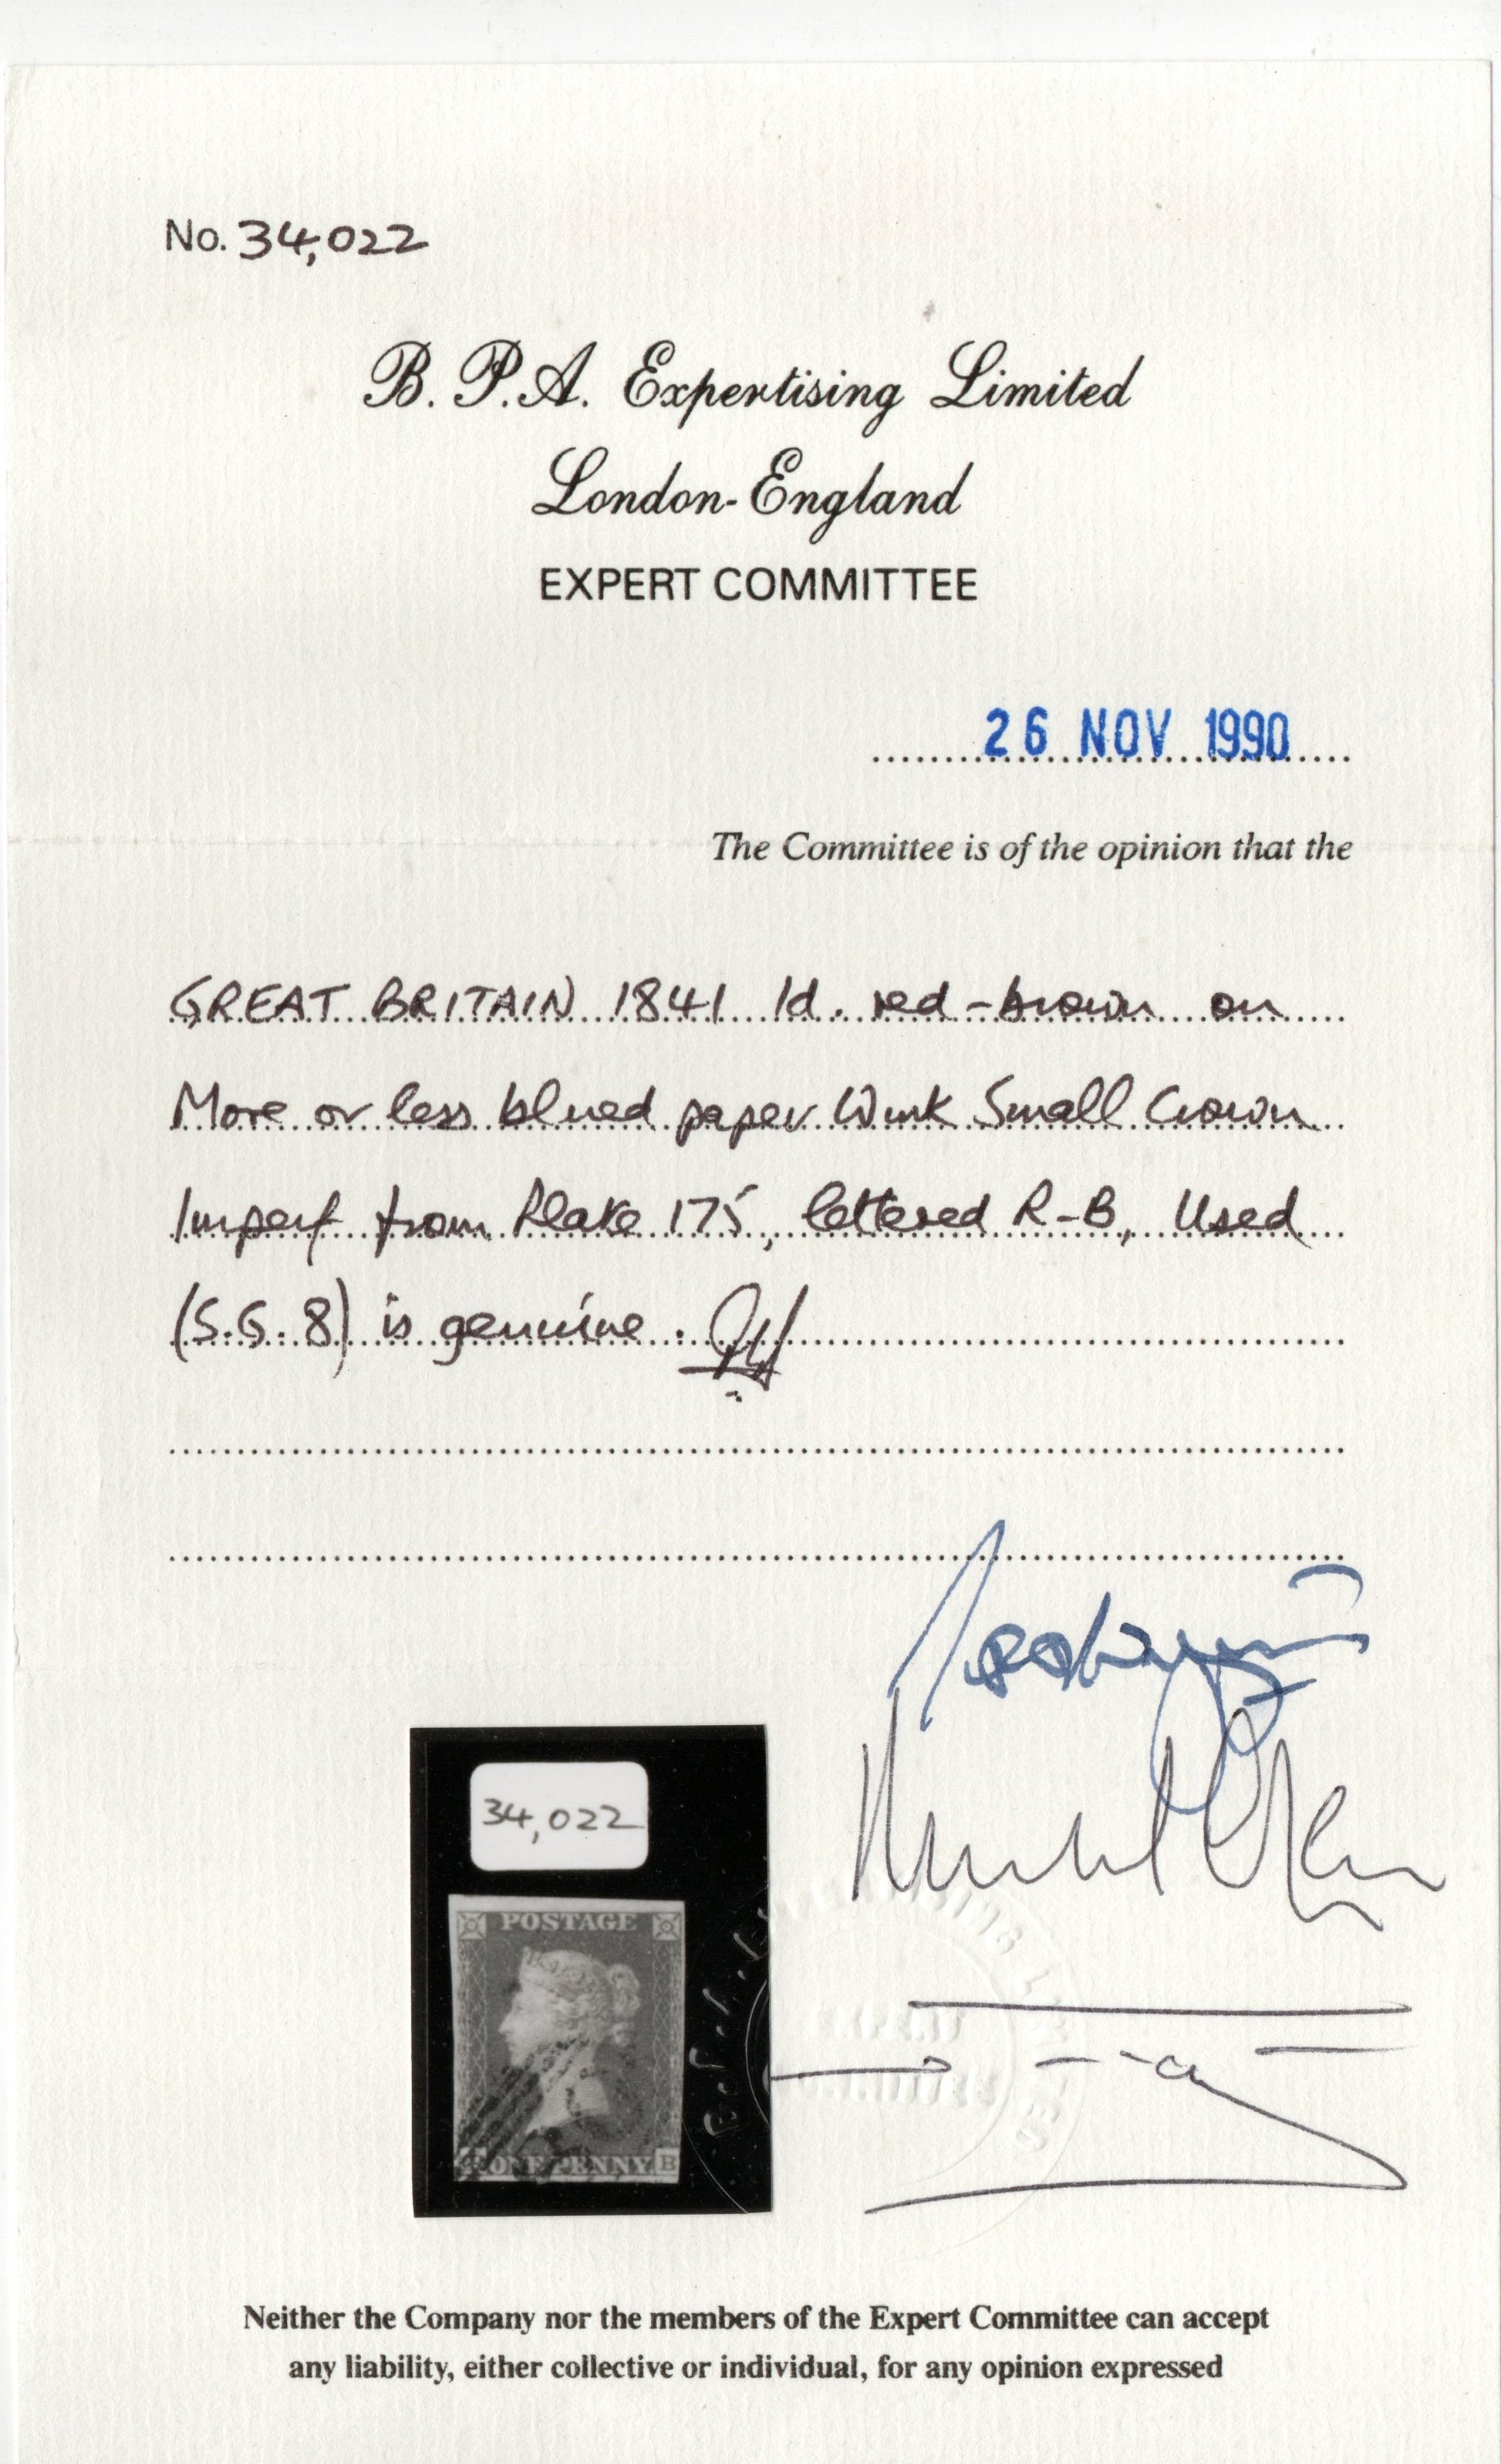 No. 34,022
B. P. A. Expertising Limited
London-England
EXPERT COMMITTEE
26 NOV 1990
The Committee is of the opinion that the
GREAT BRITAIN 1841 1d. red-brown on
More or less blued paper Wmk Small Crown
Imperf from Plate 175, lettered R-B, Used
(S.G. 8) is genuine.
34,022
POSTAGE
ONE PENNY B
Neither the Company nor the members of the Expert Committee can accept
any liability, either collective or individual, for any opinion expressed